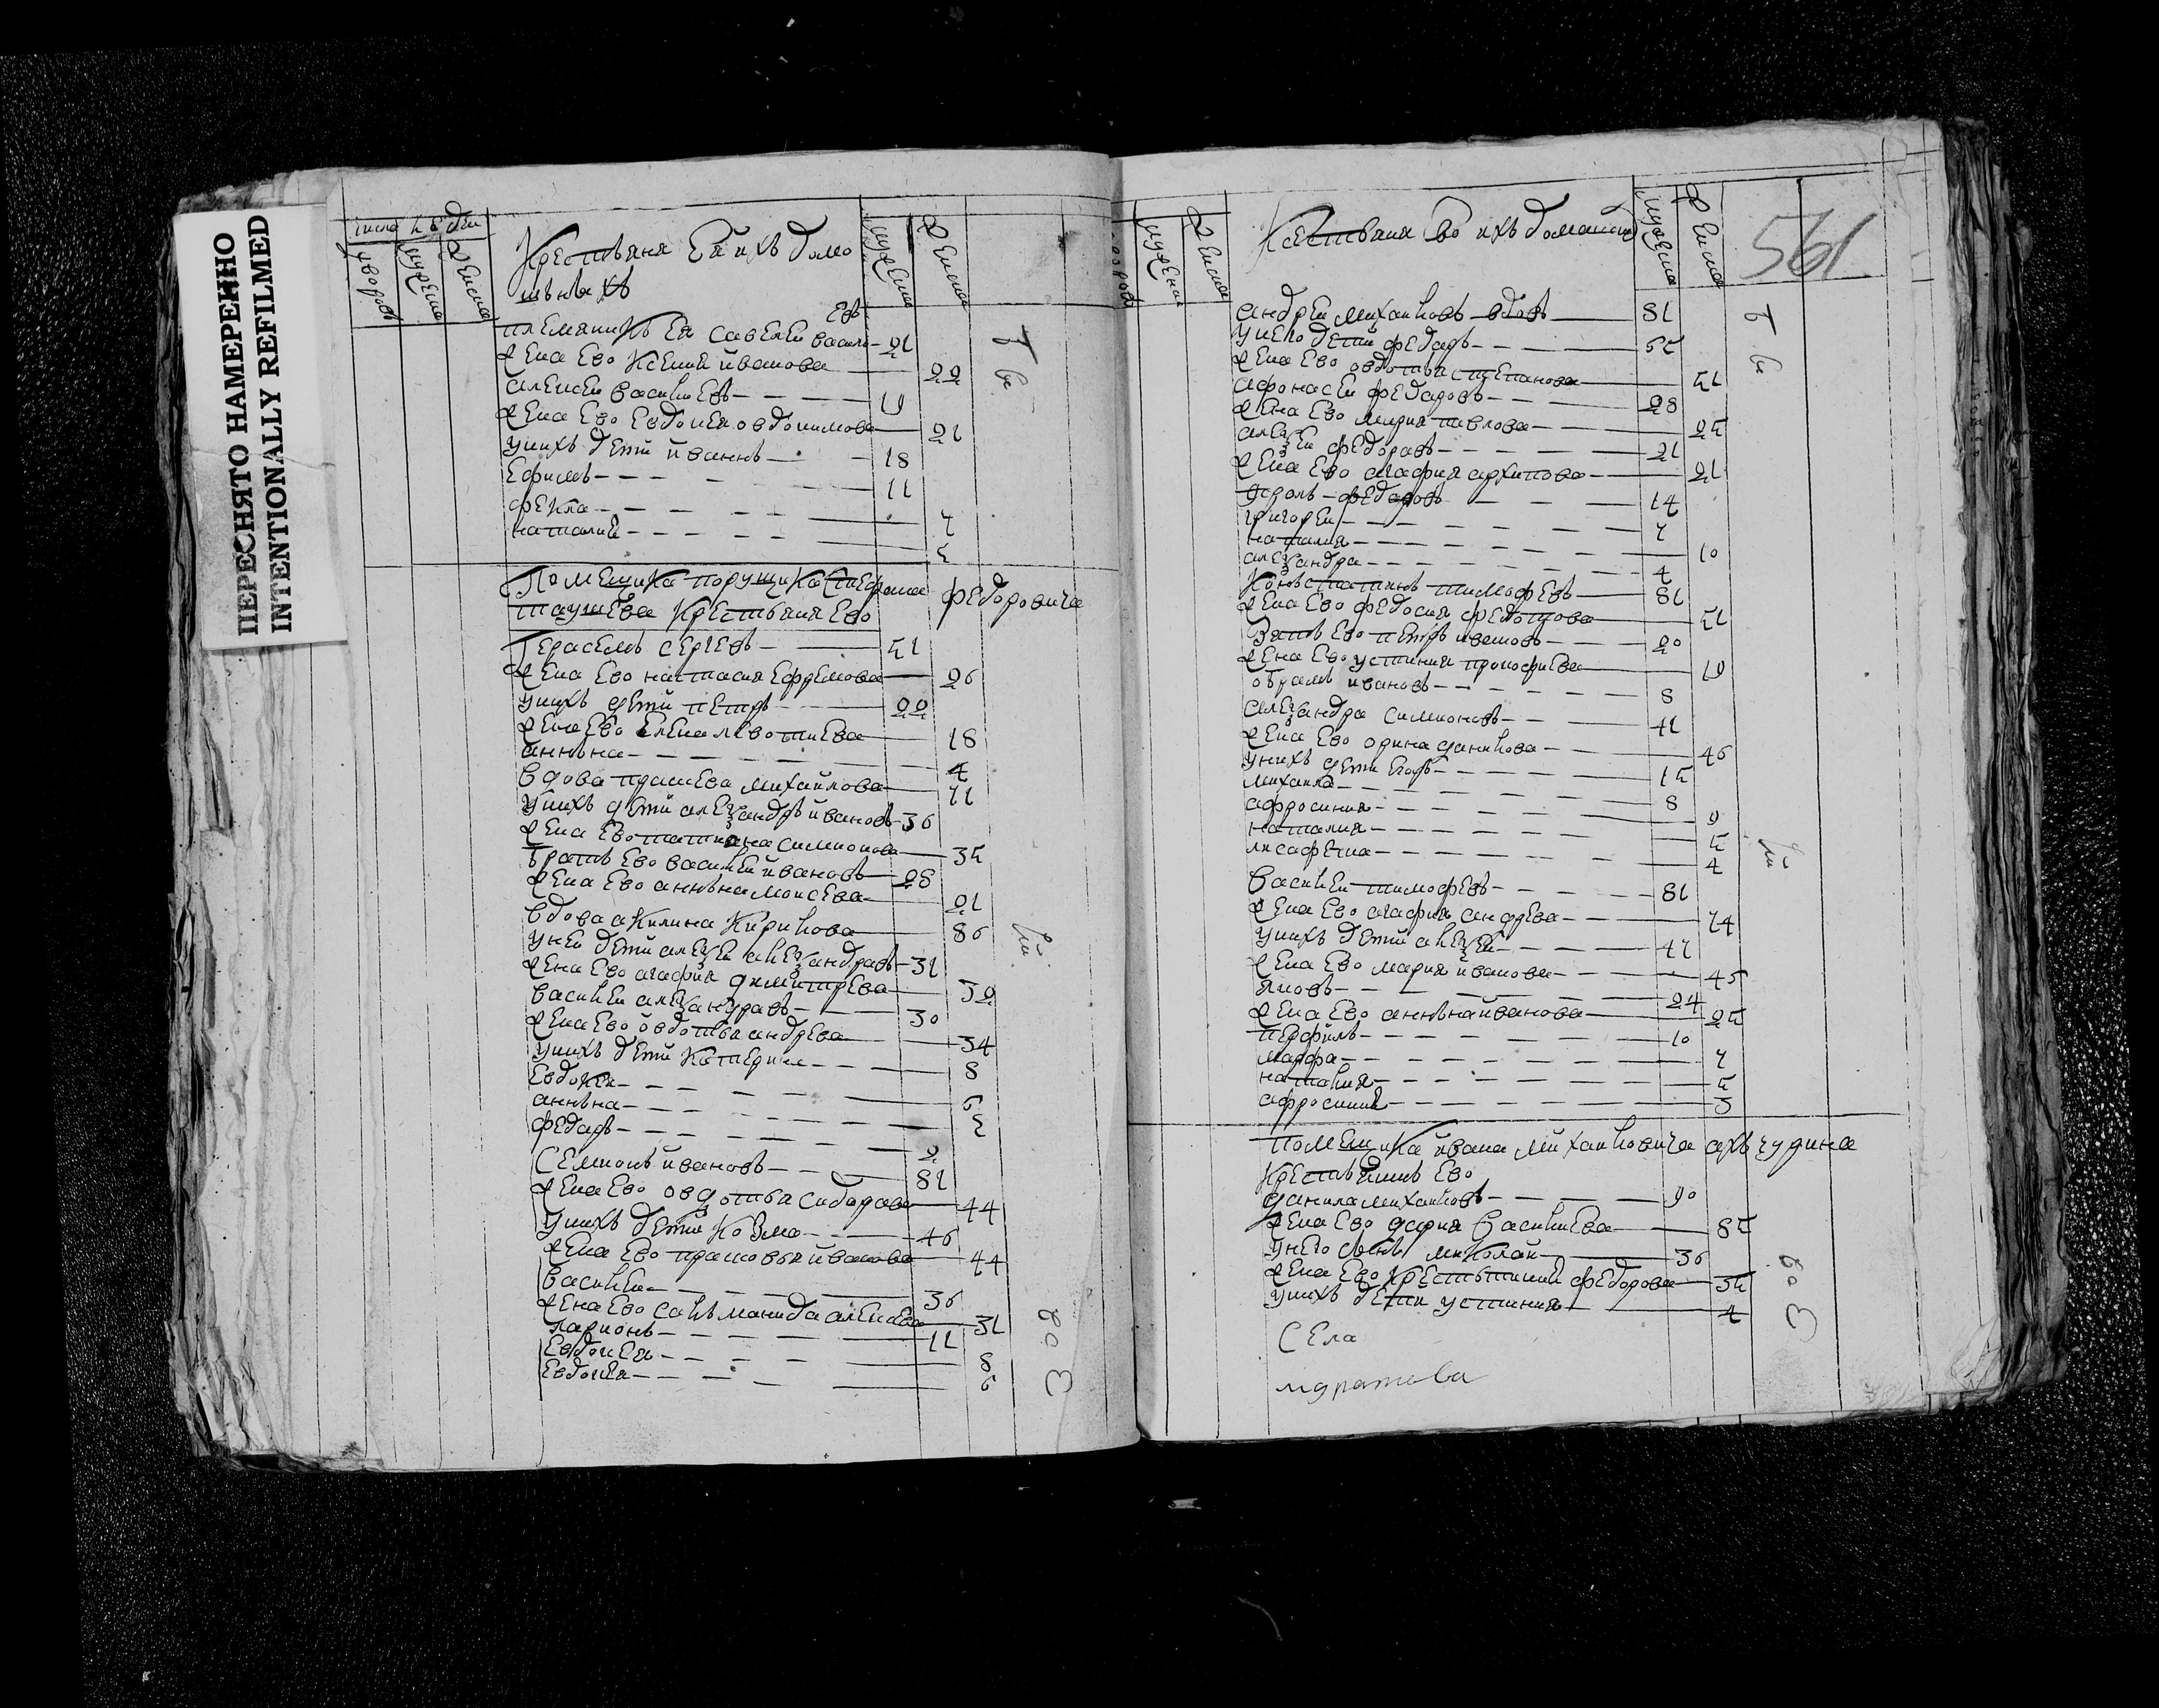 ПЕРЕСНЯТО НАМЕРЕННО
INTENTIONALLY REFILMED
число людей
дворов
мужеска
женска
Крестьяня Ея ихъ дома
шьныхъ
мужеска
женска
племяникъ Ея Савелей василь евъ 21
жена Ево Ксения иванова 22
алексей васильевъ 19
жена Ево Евдокея овдокимова 21
у нихъ дети иваннъ 18
Ефимъ 11
фекла 7
наталия
Помещика порущика Стефана федоровича
таушева крестьяня Ево
Герасемъ сергевъ 51
жена Ево настасия Ефремова 26
у нихъ дети петръ 22
жена Ево Елена леовотиева 18
анньна 4
вдова прасковя михайлова 71
у нихъ дети алеѯандръ ивановъ 36
жена Ево татияна симионова 35
братъ Ево василей ивановъ 28
жена Ево анньна моисева 21
вдова акилина Кирилова 86
у ней дети алеѯей алеѯандравъ 31
жена Ево агафия димитрева 32
василей алеѯандравъ 30
жена Ево овдотья андрева 34
у нихъ дети Катерина 8
Евдокея 6
анньна
федаръ 2
Семионъ ивановъ 81
жена Ево овдотья сидорова 44
у нихъ дети Козма 46
жена Ево прасковья иванова 44
василей 36
жена Ево сальманида алексева 31
ларионъ 11
Евдокея 8
Евдокея 6
Т
вы
308
ворово
мужеска
женска
Крестьяня Ево ихъ домашни
мужеска
женска
561
андрей михаиловъ вдовъ 81
у него дети федаръ 55
жена Ево овдотья степанова 51
афонасей федаровъ 28
жена Ево мария павлова 25
алеѯей федоравъ 21
жена Ево агафия архипова 21
федаровъ 14
григорей 7
наталия 10
алеѯандра 4
Коньстатинъ тимофевъ 81
жена Ево федосия федотова 51
зять Ево петръ ивановъ 20
жена Ево устиния прокофиева 19
обрамъ ивановъ 8
алеѯандра симионовъ 41
жена Ево орина данилова 46
у нихъ дети Егоръ 15
михаила 8
афросиния 9
наталия 5
аксафена 4
василей тимофевъ 81
жена Ево агафия андрева 74
у нихъ дети алеѯей 47
жена Ево мария иванова 45
яковъ 24
жена Ево анньна иванова 25
перфилъ 10
марфа 7
наталия 5
афросиния 3
помещика ивана михаиловича
Крестьянинъ Ево
данила михаиловъ 90
жена Ево дария василиева 85
у него сынъ миколай 36
жена Ево Крестьтиния федорова 35
у нихъ дети устиния 4
Села
Т
вы
308